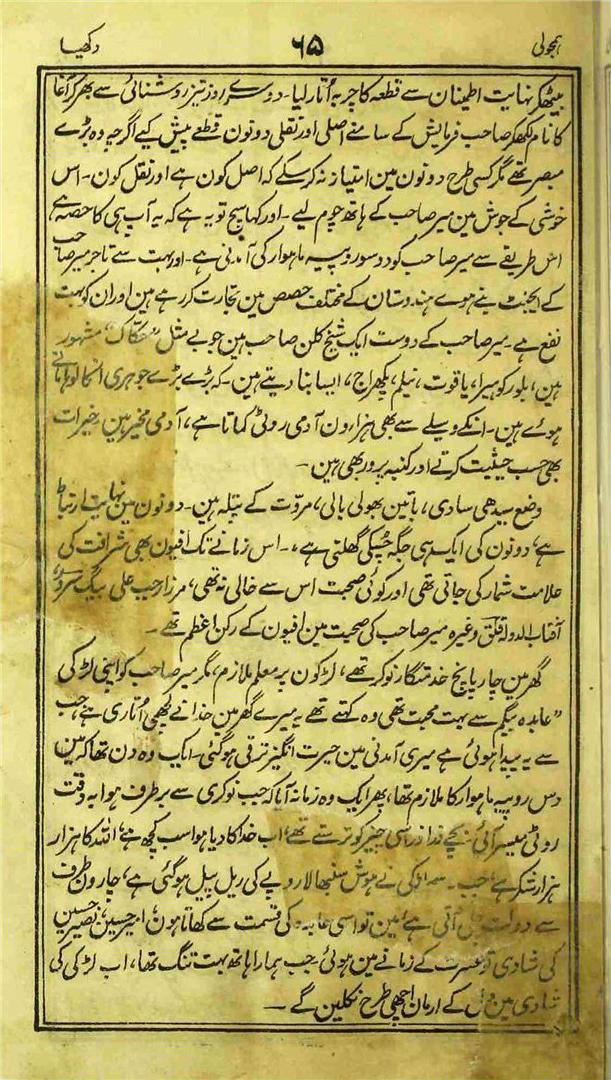 ہمجولی ۶۵ دکھیا
بیٹھکر نہایت اطمینان سے قطعہ کا چربہ اُتار لیا۔ دوسرے روز تیز روشنائی سے بھر کر آغا
کا نام لکھکر صاحب فرمایش کے سامنے اصلی اور نقلی دونون قطعے پیش کیے اگرچہ وہ بڑے
مبصر تھے مگر کسی طرح دونون مین امتیاز نہ کر سکے کہ اصل کون ہے اور نقل کون۔ اس
خوشی کے جوش مین میر صاحب کے ہاتھ چوم لیے۔ اور کہا سچ تو یہ ہے کہ یہ آپ ہی کا حصہ ہے
اس طریقے سے میر صاحب کو دو سو روپیہ ماہوار کی آمدنی ہے۔ اور بہت سے تاجر میر صاحب
کے ایجنٹ بنے ہوے ہندوستان کے مختلف حصص مین تجارت کر رہے ہین اور ان کو بہت
نفع ہے۔ میر صاحب کے دوست ایک شیخ کلن صاحب ہین جو بے مثل "حکاک" مشہور
ہین، بلور کو ہیرا، یاقوت، نیلم، پکھراج، ایسا بنا دیتے ہین۔ کہ بڑے بڑے جوہری انکا لوہا مانے
ہوئے ہین۔ انکے وسیلے سے بھی ہزارون آدمی روٹی کماتا ہے، آدمی مخیر ہین خیرات
بھی حسب حیثیت کرتے اور کنبہ پرور بھی ہین۔
وضع سیدھی سادی، باتین بھولی بالی، مروّت کے پتلہ ہین۔ دونون مین نہایت ارتباط
ہے، دونون کی ایک ہی جگہ چُسکی گھلتی ہے،۔ اس زمانے تک افیون بھی شرافت کی
علامت شمار کی جاتی تھی اور کوئی صحبت اس سے خالی نہ تھی، مرزا رجب علی بیگ سرور،
آفتاب الدولہ قلق وغیرہ میر صاحب کی صحبت مین افیون کے رکن اعظم تھے۔
گھر مین چار پانچ خدمتگار نوکر تھے، لڑکون پر معلم ملازم، مگر میر صاحب کو اپنی لڑکی
"عابدہ بیگم سے بہت محبت تھی وہ کہتے تھے یہ میرے گھر مین خدا نے لچھمی اُتاری ہے جب
سے یہ پیدا ہوئی ہے میری آمدنی مین حیرت انگیز ترقی ہو گئی۔ ایک وہ دن تھا کہ مین
دس روپیہ ماہوار کا ملازم تھا، پھر ایک وہ زمانہ آیا کہ جب نوکری سے برطرف ہوا بہ وقت
روٹی میسر آئی، بچے ذرا ذرا سی چیز کو ترستے تھے، اب خدا کا دیا ہوا سب کچھ ہے، اللہ کا ہزار
ہزار شکر ہے، جب سے لڑکی نے ہوش سنبھالا روپے کی ریل پیل ہو گئی ہے، چارون طرف
سے دولت چلی آتی ہے، مین تو اسی عابدہ کی قسمت سے کھاتا ہون، امیر حسین، نصیر حسین
کی شادی تو عسرت کے زمانے مین ہوئی، جب ہمارا ہاتھ بہت تنگ تھا، اب لڑکی کی
شادی مین دل کے ارمان اچھی طرح نکلین گے۔